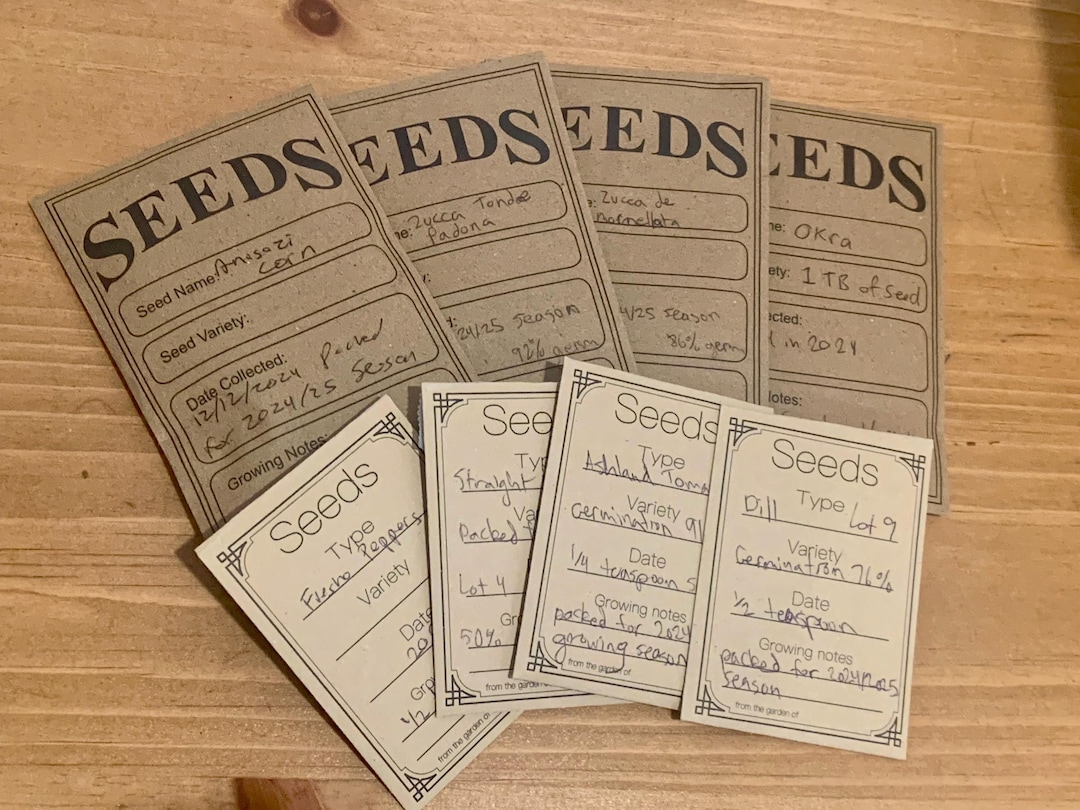 SEEDS
Seed Name: Anisazi
corn
Seed Variety:
Date Collected:
12/12/2024 Packed
for 2024/25 Season
Growing Notes:
EEDS
Zucca Tonda
Padona
24/25 season
92% germ
EEDS
Zucca de
marmellata
4/25 season
86% germ
EEDS
me: Okra
ety: 1 TB of seed
ected:
in 2024
Notes:
Seeds
Type
Fresno Peppers
Variety
Date
Seeds
Straight
Packed
Lot 4
50%
from the garden
Seeds
Type
Ashland Tom
Variety
Germination 91
Date
1/4 teaspoon s
Growing notes
packed for 2024
growing season
from the garden of
Seeds
Type
Dill Lot 9
Variety
Germination 76%
Date
1/2 teaspoon
Growing notes
packed for 2024/2025
season
from the garden of